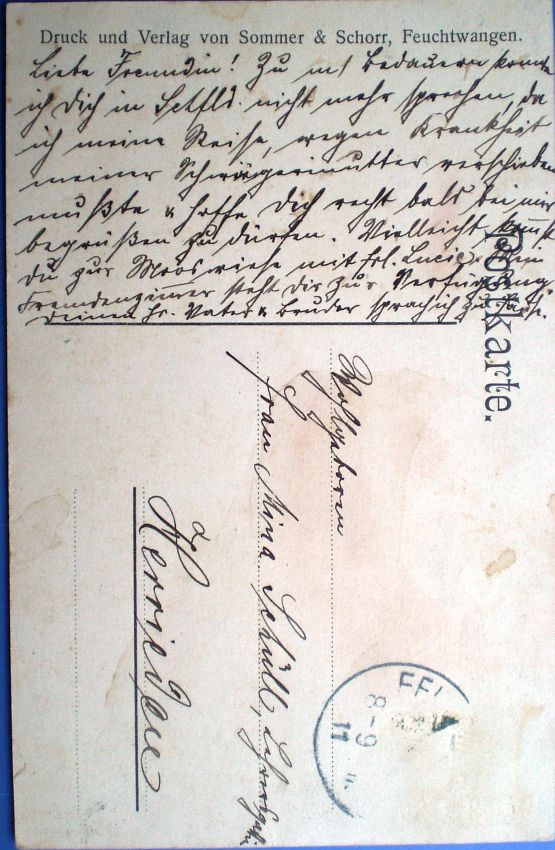 Druck und Verlag von Sommer & Schorr, Feuchtwangen.
Liebe Freundin! Zu m/ Bedauern konnte
ich Dich in nicht mehr sprechen, da
ich meine Reise, wegen Krankheit
meiner Schwiegermutter verschieben
mußte & hoffe Dich recht bald bei mir
begrüßen zu dürfen. Vielleicht kommst
Du zur Mooswiese mit Frl. Lucie. Mein
Fremdenzimmer steht Dir zur Verfügung.
Deinen Hr. Vater & Bruder sprach ich
Postkarte.
Wohlgeboren
Frau Mina Schüll,
Herrieden
FEU
8-9
11